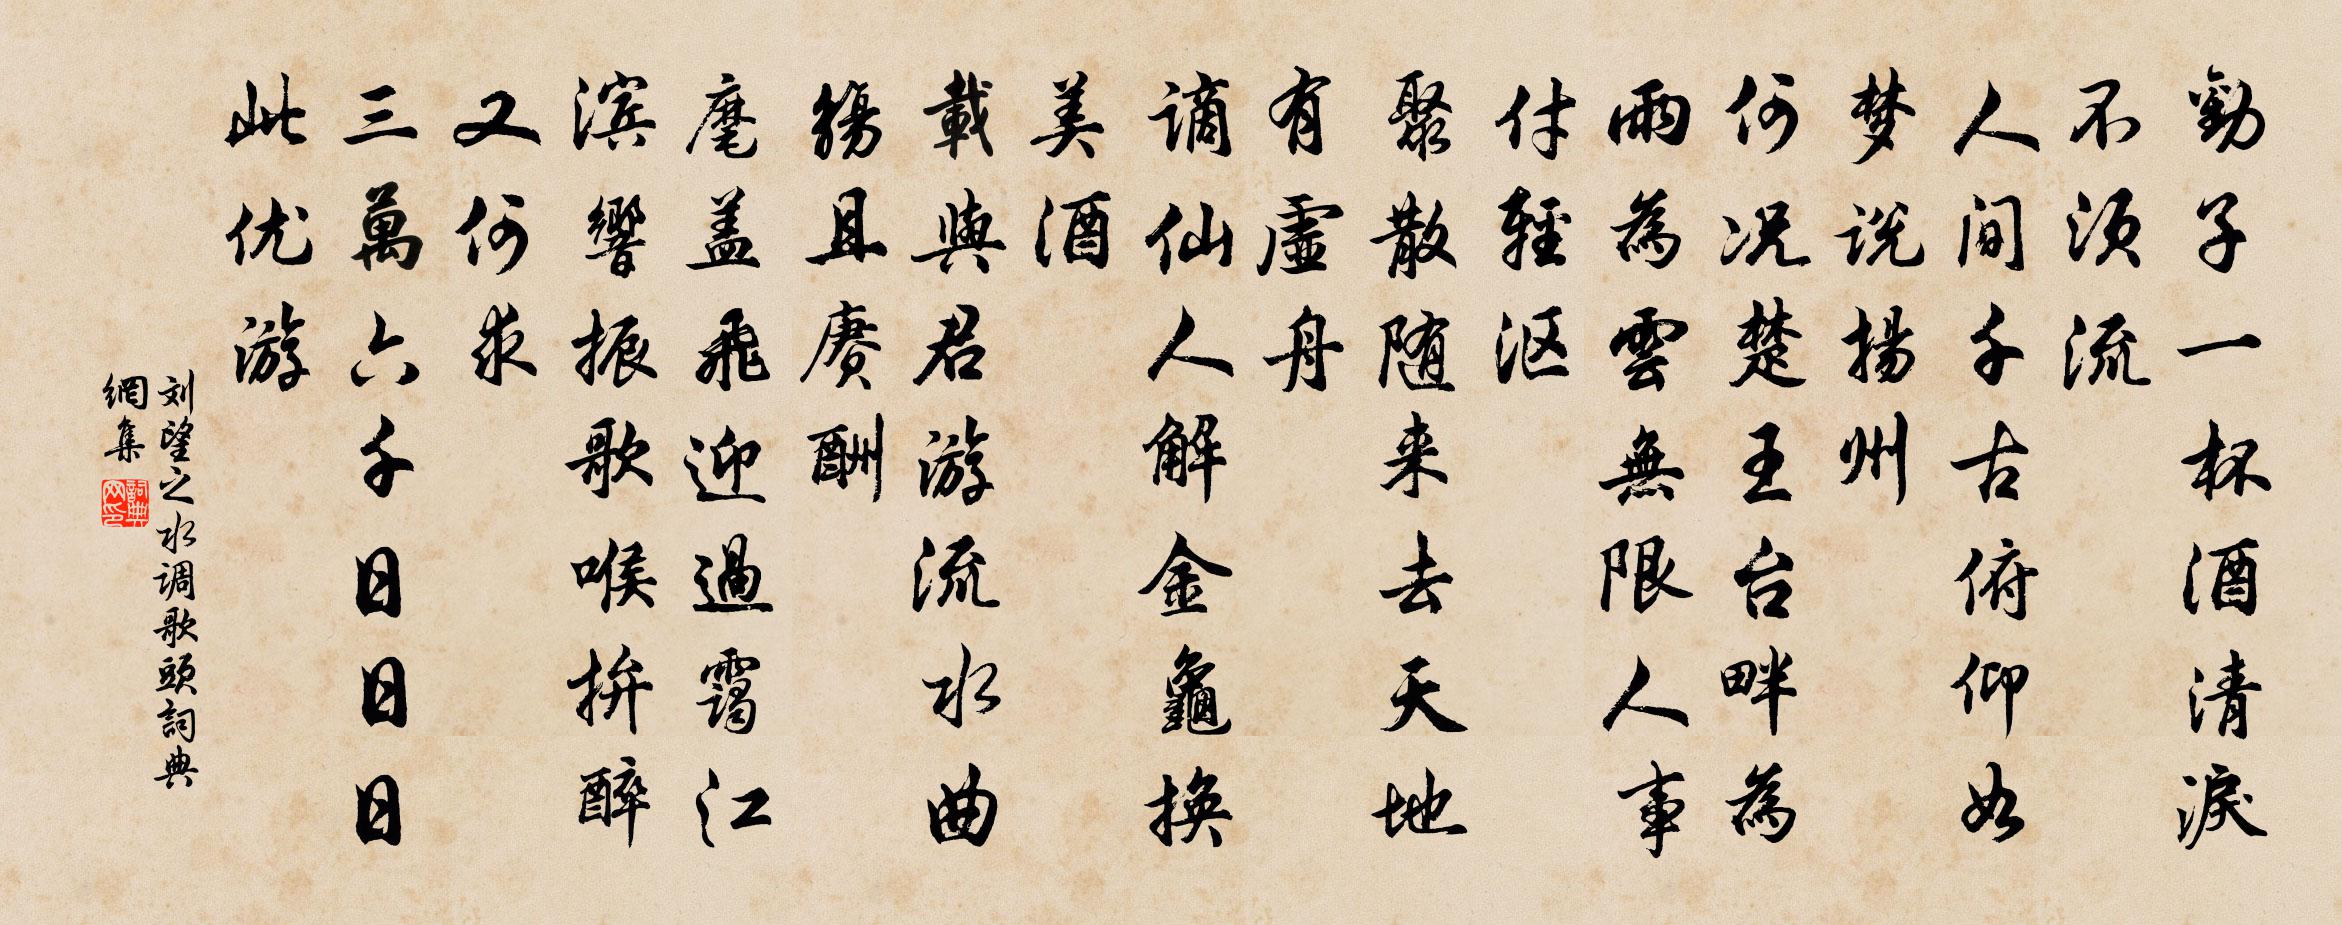 勸子一杯酒清淚
不须流
人间千古俯仰如
梦说揚州
何况楚王台畔為
雨為雲無限人事
付輕沤
聚散随来去天地
有虛舟
谪仙人解金龜換
美酒
載與君游流水曲
觞且赓酬
麾盖飛迎過靄江
滨響振歌喉拚醉
又何求
三萬六千日日日
此优游
刘望之水调歌頭詞典
網集
詞典网印